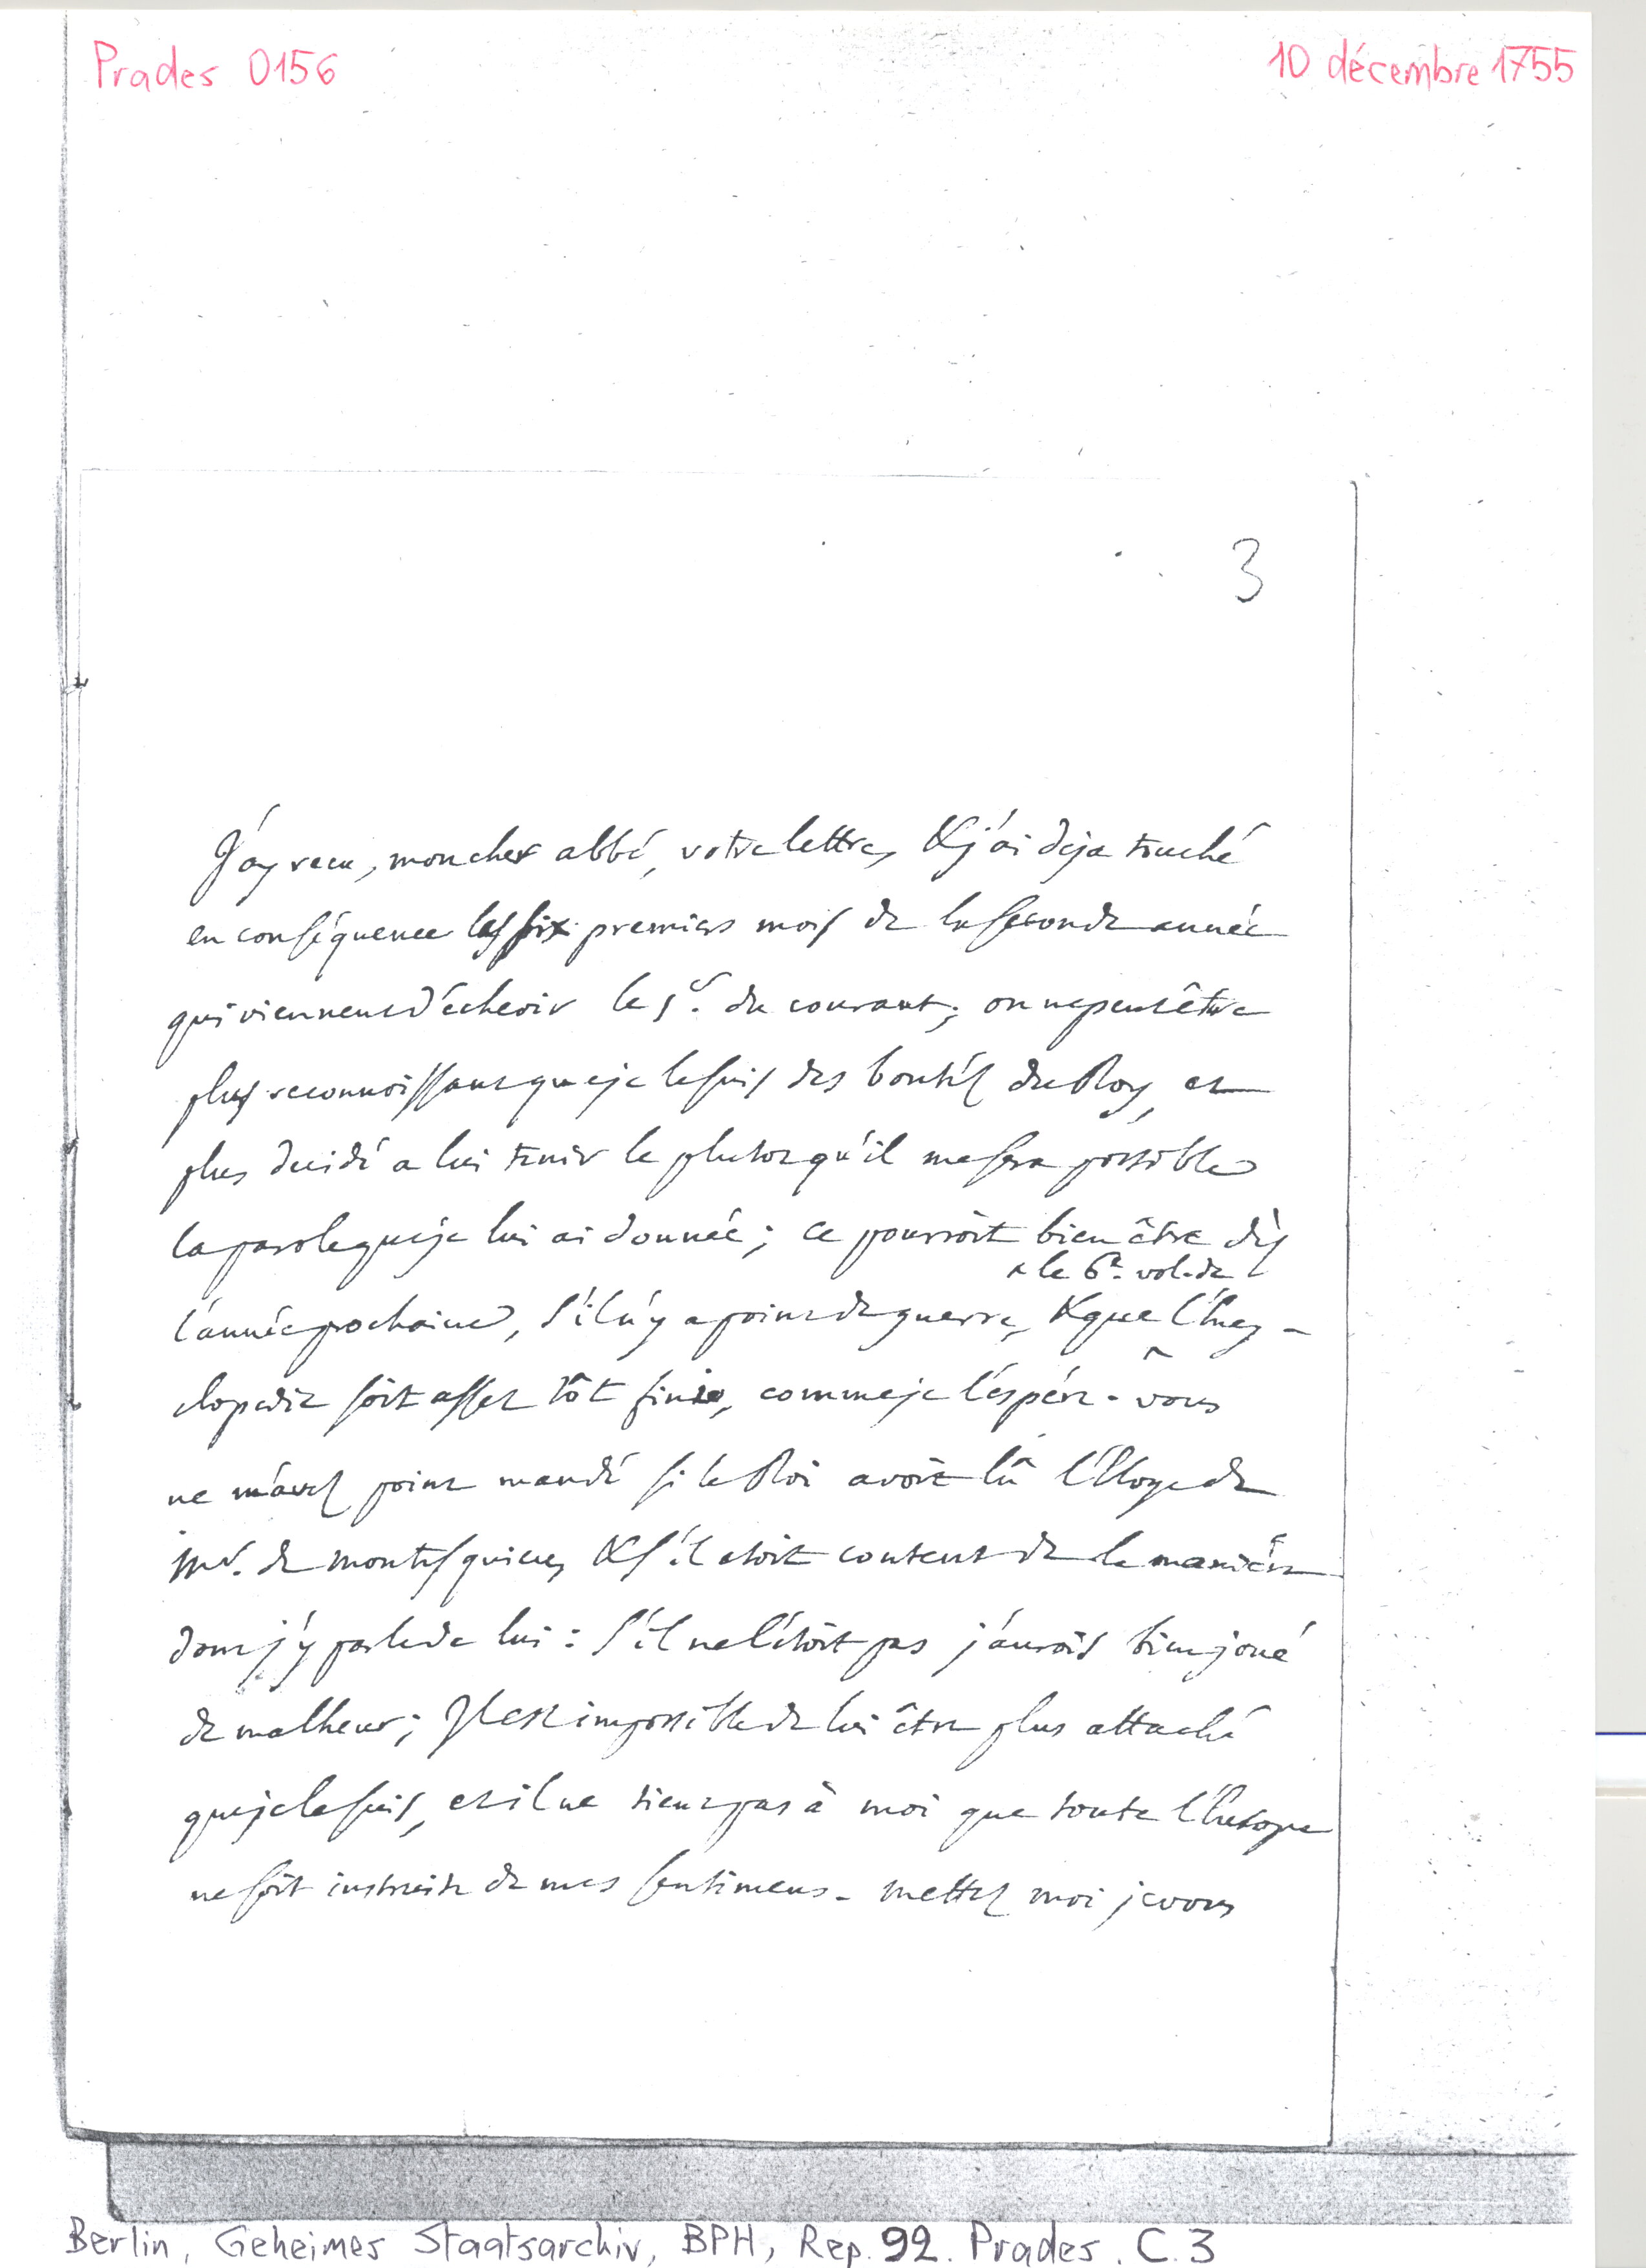 Prades 0156
10 décembre 1755
3
J'ay recu, mon cher abbé, votre lettre, & j'ai deja touché
en conséquence les six premiers mois de la seconde année
qui viennent d'echeoir le 1er. du courant; on ne peut être
plus reconnoissant que je le suis des bontés du Roy, et
plus decidé a lui tenir le plutot qu'il me sera possible
la parole que je lui ai donnée; ce pourroit bien être dès
le 6e. vol. de
l'année prochaine, s'il n'y a point de guerre, & que l'Ency-
clopedie soit assez tôt fini, comme je l'espére. vous
ne m'avez point mandé si le Roi avoit lû l'Eloge de
Mr. de montesquieu, & s'il etoit content de la maniére
dont j'y parle de lui: s'il ne l'étoit pas j'aurois bien joué
de malheur; Il est impossible de lui être plus attaché
que je le suis, et il ne tient pas à moi que toute l'Europe
ne soit instruite de mes sentimens. mettez moi je vous
Berlin, Geheimes Staatsarchiv, BPH, Rep. 92. Prades. C. 3